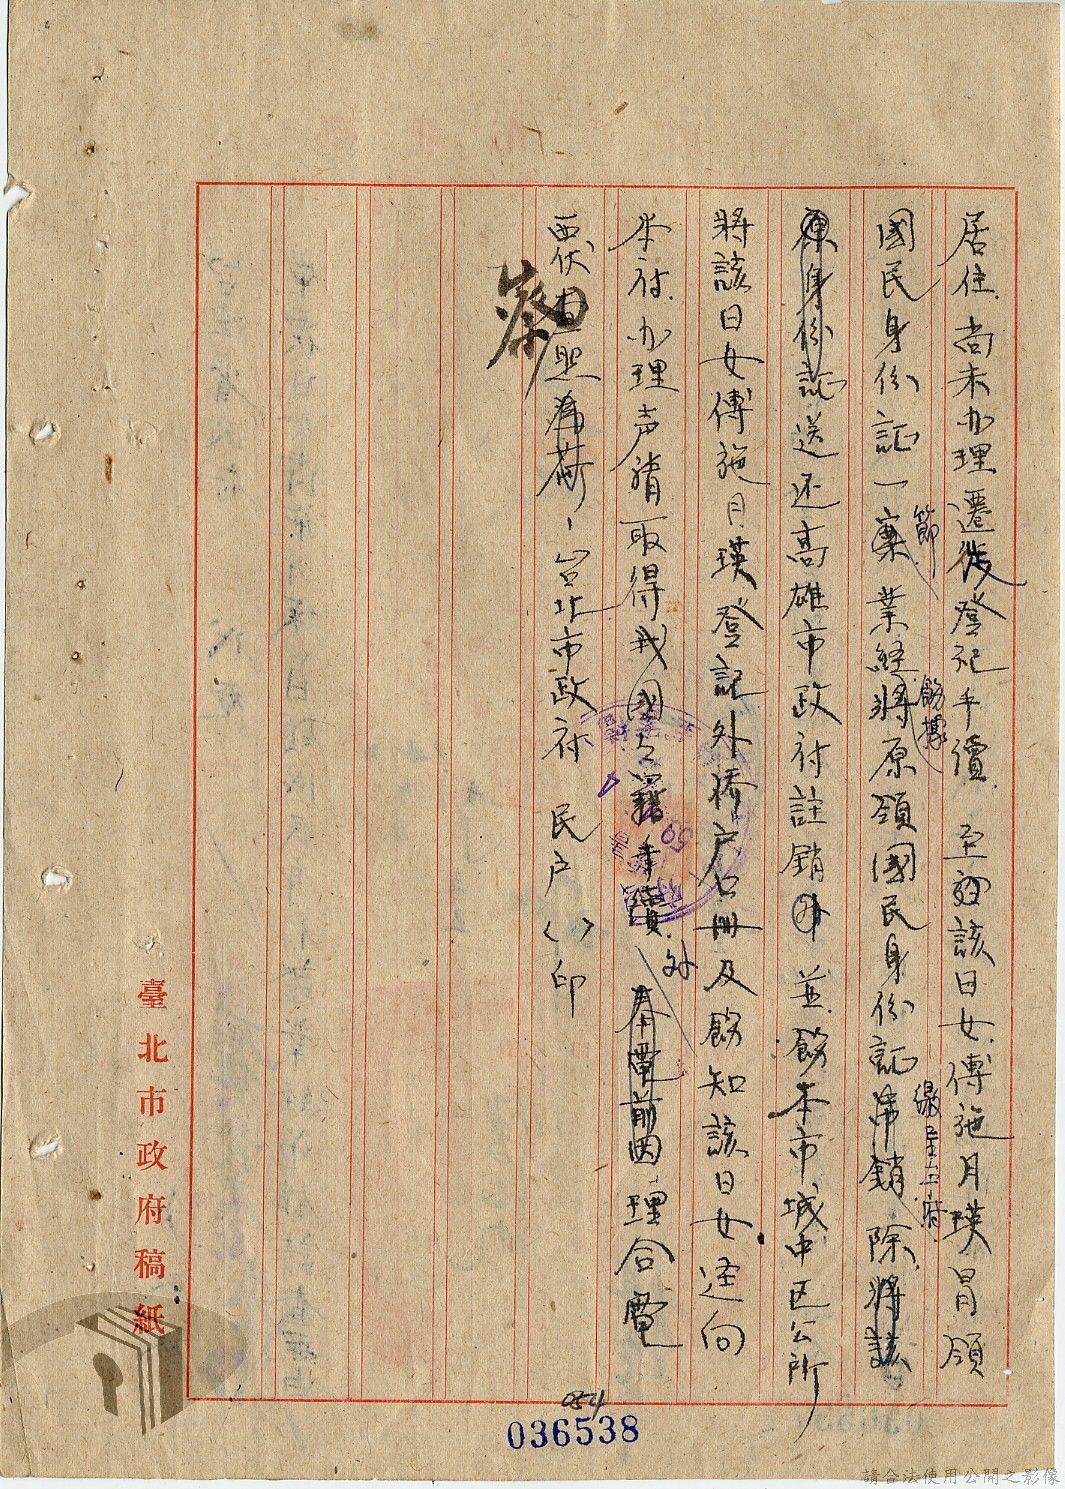 居住尚未办理遷徙登記手續至初該日女傅施月瑛冒領
國民身份証一節業経飭據將原領國民身份証繳呈上府吊銷除將該
原身份証送还高雄市政府註銷外並飭本市城中区公所
將該日女傅施月瑛登記外橋户口册及飭知該日女逕向
本府办理声請取得我國之籍手續外奉電前因理合電
覆伏查照為荷台北市政府民户〈〉印
臺北市政府稿紙
054
036538
請合法使用公開之影像